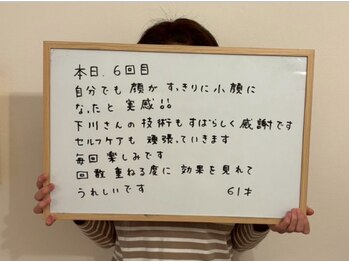 本日.6回目
自分でも 顔が すっきりに 小顔に
なったと 実感!!
下川さんの 技術も すばらしく 感謝です
セルフケアも 頑張っていきます
毎回 楽しみです
回数 重ねる度に 効果を見れて
うれしいです 61才